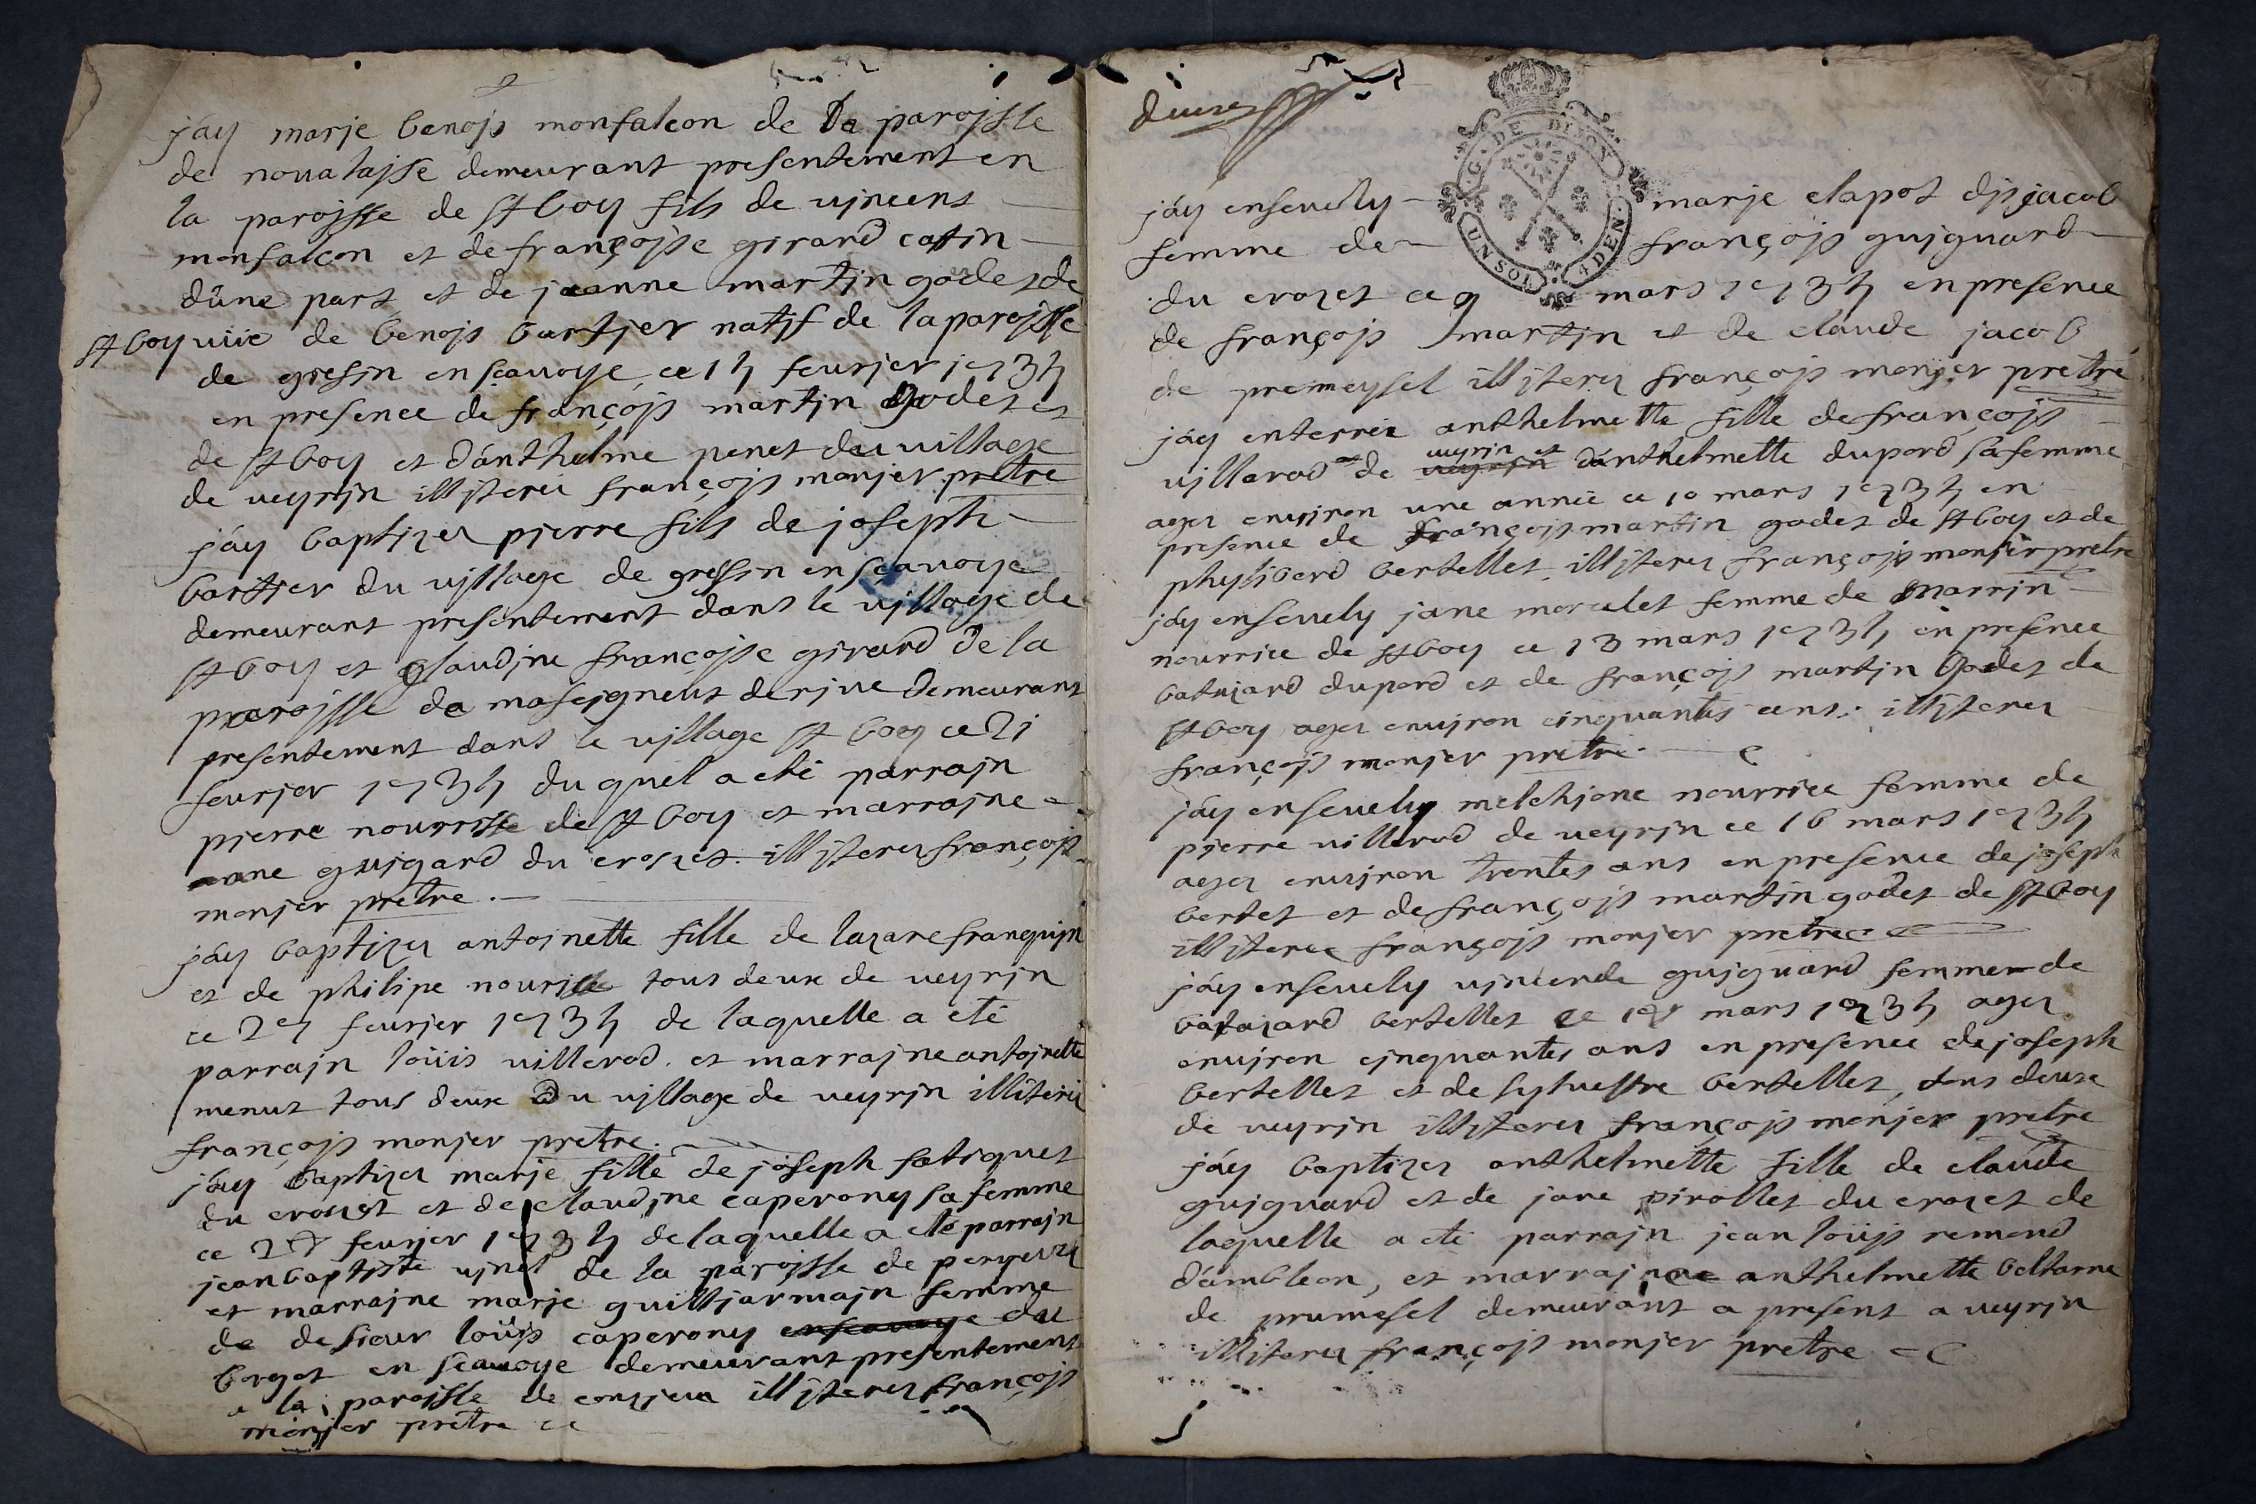 jáy marje benojs monfalcon de la parojsse
de novalajse demeurant presentement en
la parojsse de st boy fils de vjncent
monfalcon et de françojse girard catin
dúne part et de jeanne martjn godet de
st boy vüe de benojs bartjer natjf de la parojsse
de gresjn en sçavoye ce 14 feurjer 1734
en presence de françojs martjn godet et
de st boy et dánthelme penet du village
de veyrjn illjterez françojs monjer pretre
jáy baptjzez pjerre fils de joseph
bartjer du vjllage de gressjn en sçavoye
demeurant presentement dans le vjllage de
st boy et glaudjne françojse girard de la
parojsse de maseigneut de rjve demeurant
presentement dans le vjllage st boy ce 21
feurjer 1734 du quel a eté parrajn
pjerre nourrisse de st boy et marrajne
ane guigard du crozet illjterez françojs
monjer pretre
jáy baptjzez antojnette fille de lazare franqujn
et de philipe nourisse tous deux de veyrjn
ce 27 feurjer 1734 de laquelle a eté
parrajn loüis villerod et marrajne antojnette
menut tous deux du vjllage de veyrjn illiteréz
françojs monjer pretre
jáy baptjzez marje fille de joseph fatiguet
du crouzet et de claudjne caperony sa femme
ce 28 feurjer 1734 de laquelle a eté parrajn
jean baptjste vjnet de la parojsse de peyrieuz
et marrajne marje guilljarmajn femme
de de sieur loüjs caperony en scavoye du
borget en scavoye demeurant presentement
a la parojsse de conzjeu illjterez françojs
monjer pretre
deuxe
G. DE DIJON
UN SOL 4 DEN.
jáy ensevely marje clapot djt jacob
femme de françojs gujguard
du crozet ce 9 mars 1734 en presence
de françojs martjn et de claude jacob
de premeysel illjterez françojs monjer pretre
jáy enterréz anthelmette fille de françojs
vjllerod de veyrjn et dánthelmette dupord sa femme
agez envjron une année ce 10 mars 1734 en
presence de françojs martin godet de st boy et de
phyliberd bertellet illjterez françojs monjer pretre
jáy ensevely jane morulet femme de marrjn
nourrice de st boy ce 13 mars 1734 en presence
batazard dupord et de françojs martjn godet de
st boy agez envjron cinquantes ans illjterez
françojs monjer pretre
jáy ensevely melchjone nourrice femme de
pjerre villerod de veyrjn ce 16 mars 1734
agez envjron trentes ans en presence de joseph
bertet et de françojs martjn godet de st boy
illjterez françojs monjer pretre
jáy ensevely vjncende gujguard femme de
batazard bertellet ce 18 mars 1734 agez
envjron cjnquantes ans en presence de joseph
bertellet et de sylvestre bertellet, tous deux
de veyrjn illjterez françojs monjer pretre
jáy baptizez anthelmette fille de claude
gujguard et de jane pirollet du crozet de
laquelle a eté parrajn jean loüjs remond
dámbleon, et marrajne anthelmette beltarne
de prumesel demeurant a present a veyrjn
illjterez françojs monjer pretre